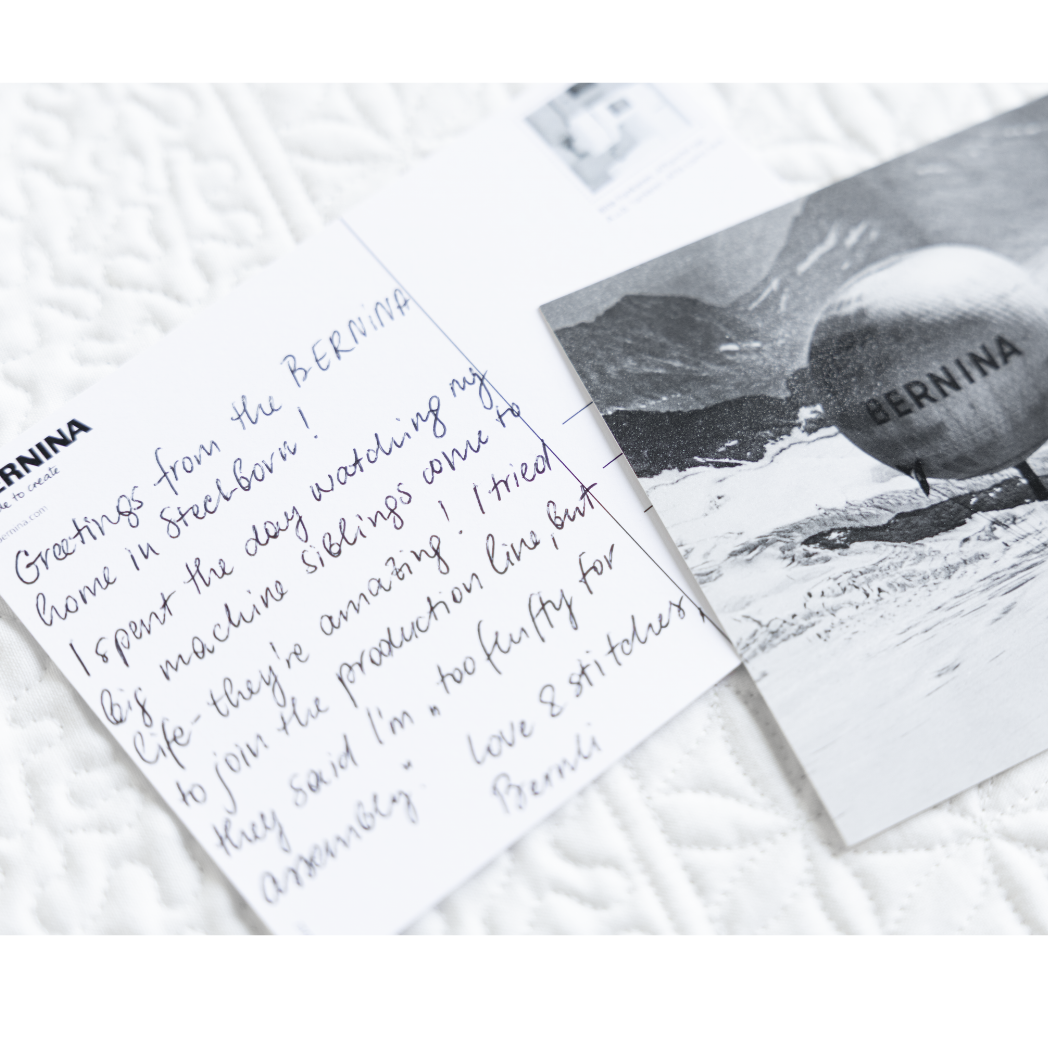 BERNINA
Greetings from the BERNINA
home in Steckborn!
I spent the day watching my
big machine siblings come to
life - they're amazing! I tried
to join the production line, but
they said I'm "too fluffy for
assembly."
Love & stitches,
Bernli
BERNINA